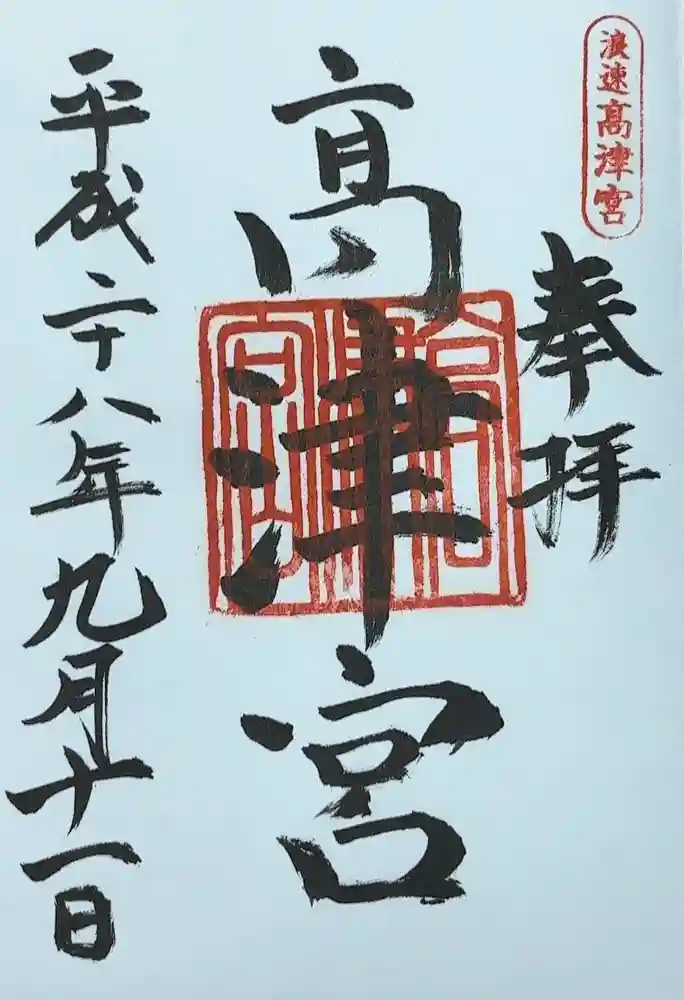 浪速高津宮
奉拝
高津宮
高津宮
平成二十八年九月十一日